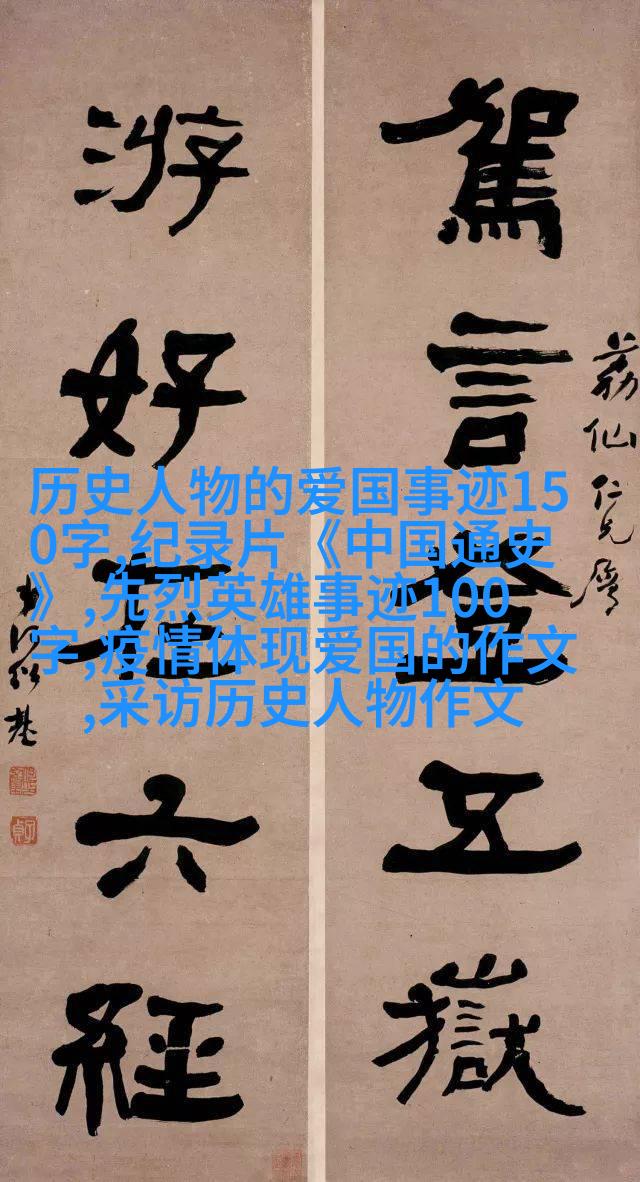 荔仙仁兄屬
駕言登五嶽
游好在六經
弟何紹基
子貞
历史人物的爱国事迹15
0字,纪录片《中国通史
》,先烈英雄事迹100
字,疫情体现爱国的作文
,采访历史人物作文